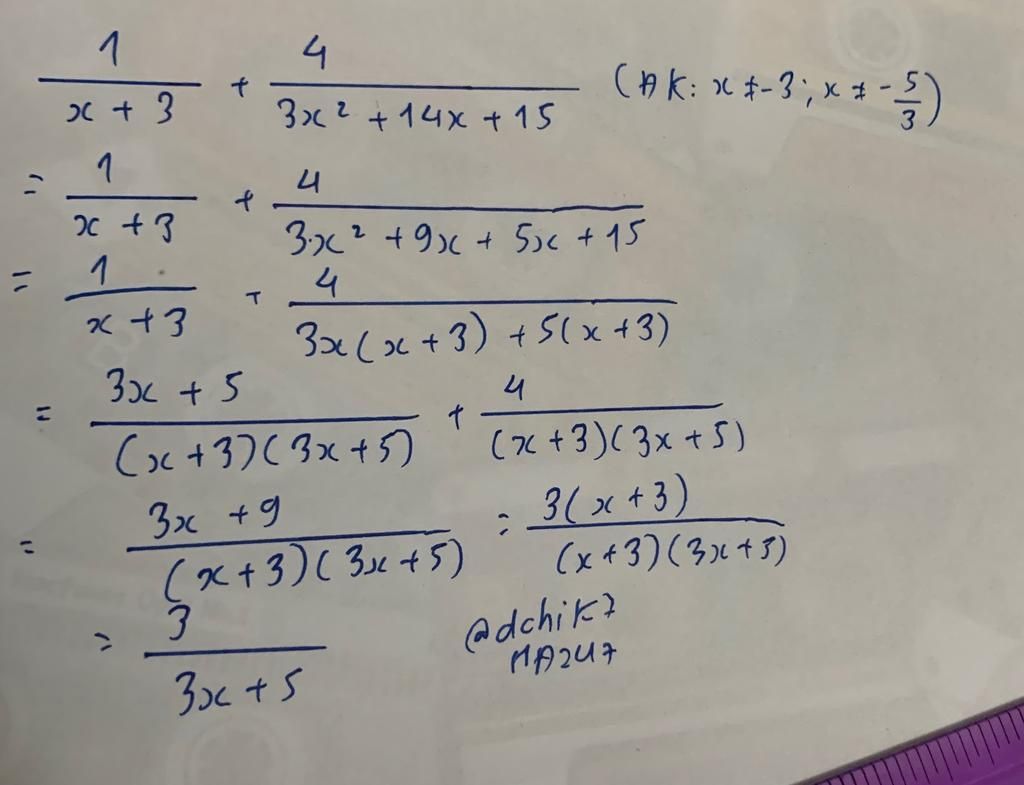 1/(x + 3) + 4/(3x² + 14x + 15) (ĐK: x ≠ -3; x ≠ -5/3)
= 1/(x + 3) + 4/(3x² + 9x + 5x + 15)
= 1/(x + 3) + 4/(3x(x + 3) + 5(x + 3))
= (3x + 5)/((x + 3)(3x + 5)) + 4/((x + 3)(3x + 5))
= (3x + 9)/((x + 3)(3x + 5)) = 3(x + 3)/((x + 3)(3x + 5))
= 3/(3x + 5)
@dchik7
MA247